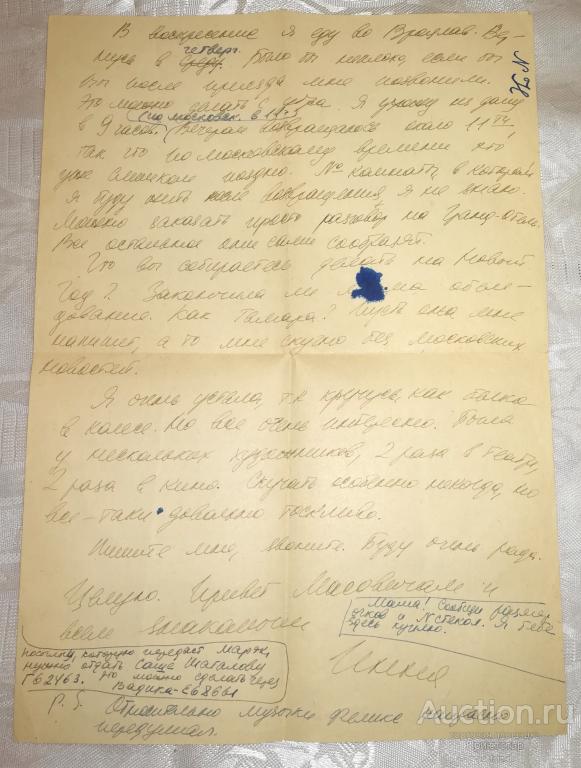 В воскресение я еду во Вроцлав. Вер-
нусь в среду четверг. Было бы неплохо, если бы
вы после приезда мне позвонили.
Это можно сделать с утра. Я ухожу из дому
в 9 часов (по московск. в 11 ч.) Вечером возвращаюсь около 11,
так что по московскому времени это
уже слишком поздно. № комнаты, в которой
я буду жить после возвращения, я не знаю.
Можно заказать просто разговор на Гранд-отель.
Все остальное они сами сообразят.
Что вы собираетесь делать на Новый
Год? Закончила ли мама обсле-
дование. Как Тамара? Пусть она мне
напишет, а то мне скучно без московских
новостей.
Я очень устала, т.к. кручусь, как белка
в колесе. Но все очень интересно. Была
у нескольких художников, 2 раза в театре,
2 раза в кино. Скучать особенно некогда, но
все-таки довольно тоскливо.
Пишите мне, звоните. Буду очень рада.
Целую. Привет Масовичам и
всем знакомым
Мама! Сообщи размер
очков и № стекол. Я тебе
здесь куплю.
Инна
посылку, которую передаст Марэк,
нужно отдать Саше Шагалову
Г62463. Но можно сделать через
Вадика - Е68661
P.S. Относительно музыки Феликс
передумал.
Auction.ru